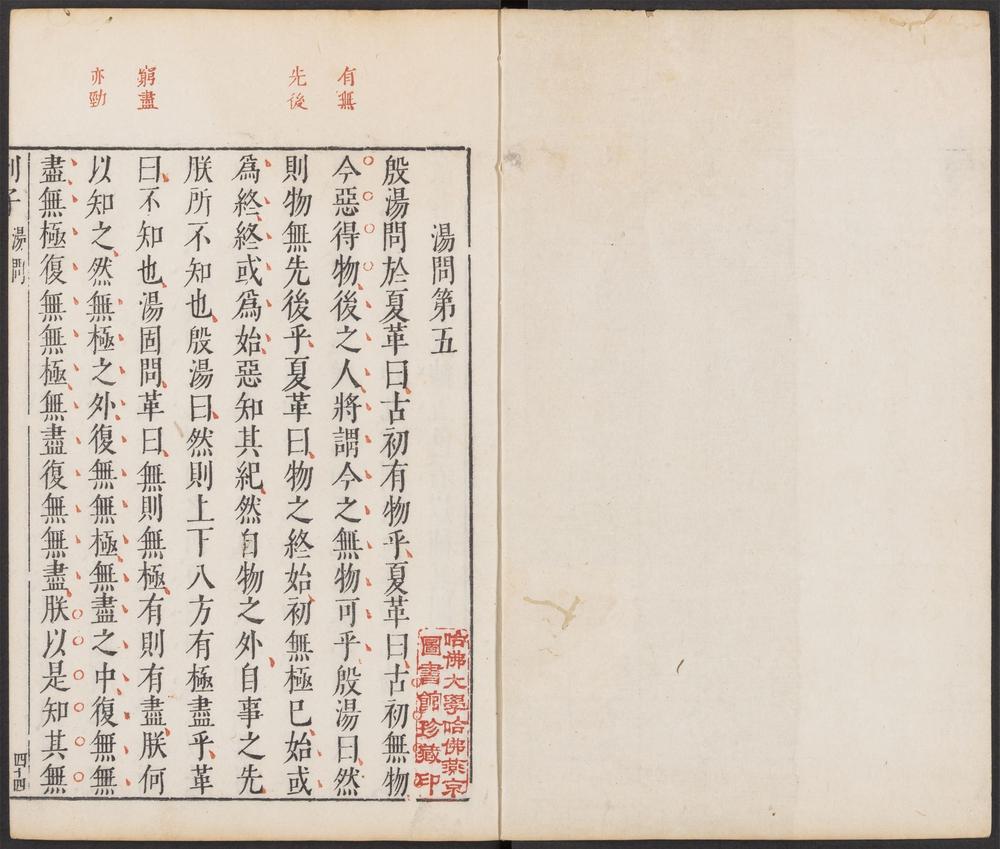 有無
先後
窮盡
亦勁
湯問第五
殷湯問於夏革曰古初有物乎夏革曰古初無物
今惡得物後之人將謂今之無物可乎殷湯曰然
則物無先後乎夏革曰物之終始初無極已始或
爲終終或爲始惡知其紀然自物之外自事之先
朕所不知也殷湯曰然則上下八方有極盡乎革
曰不知也湯固問革曰無則無極有則有盡朕何
以知之然無極之外復無無極無盡之中復無無
盡無極復無無極無盡復無無盡朕以是知其無
列子
湯問
四十四
哈佛大學哈佛燕京
圖書館珍藏印